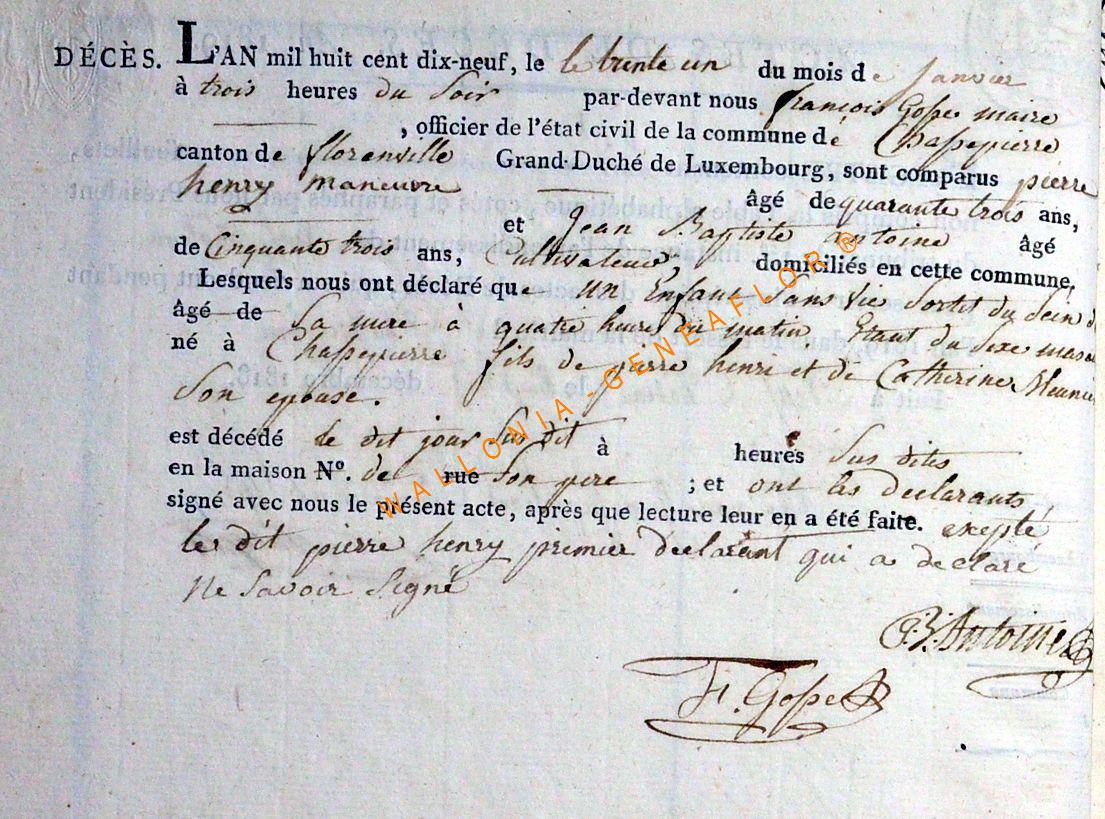 DÉCÈS. L'AN mil huit cent dix-neuf, le le trente un du mois de janvier
à trois heures du Soir par-devant nous françois Gosse maire
, officier de l'état civil de la commune de Chassepierre
canton de florenville Grand-Duché de Luxembourg, sont comparus pierre
henry maneuvre âgé de quarante trois ans,
et Jean Baptiste antoine âgé
de Cinquante trois ans, Cultivateur, domiciliés en cette commune.
Lesquels nous ont déclaré que un Enfant Sans Vie Sortit du Sein de
âgé de Sa mere à quatre heures du matin Etant du Sexe
né à Chassepierre fils de pierre henri et de Catherine
Son epouse.
est décédé le dit jour Sus dit à heures Sus dites
en la maison N°. de rue Son pere ; et ont les declarants
signé avec nous le présent acte, après que lecture leur en a été faite. exepté
le dit pierre henry premier declarant qui a declaré
Ne Savoir Signé
J.B. Antoine
F. Gosse
WALLONIA-GENEAFLOR®